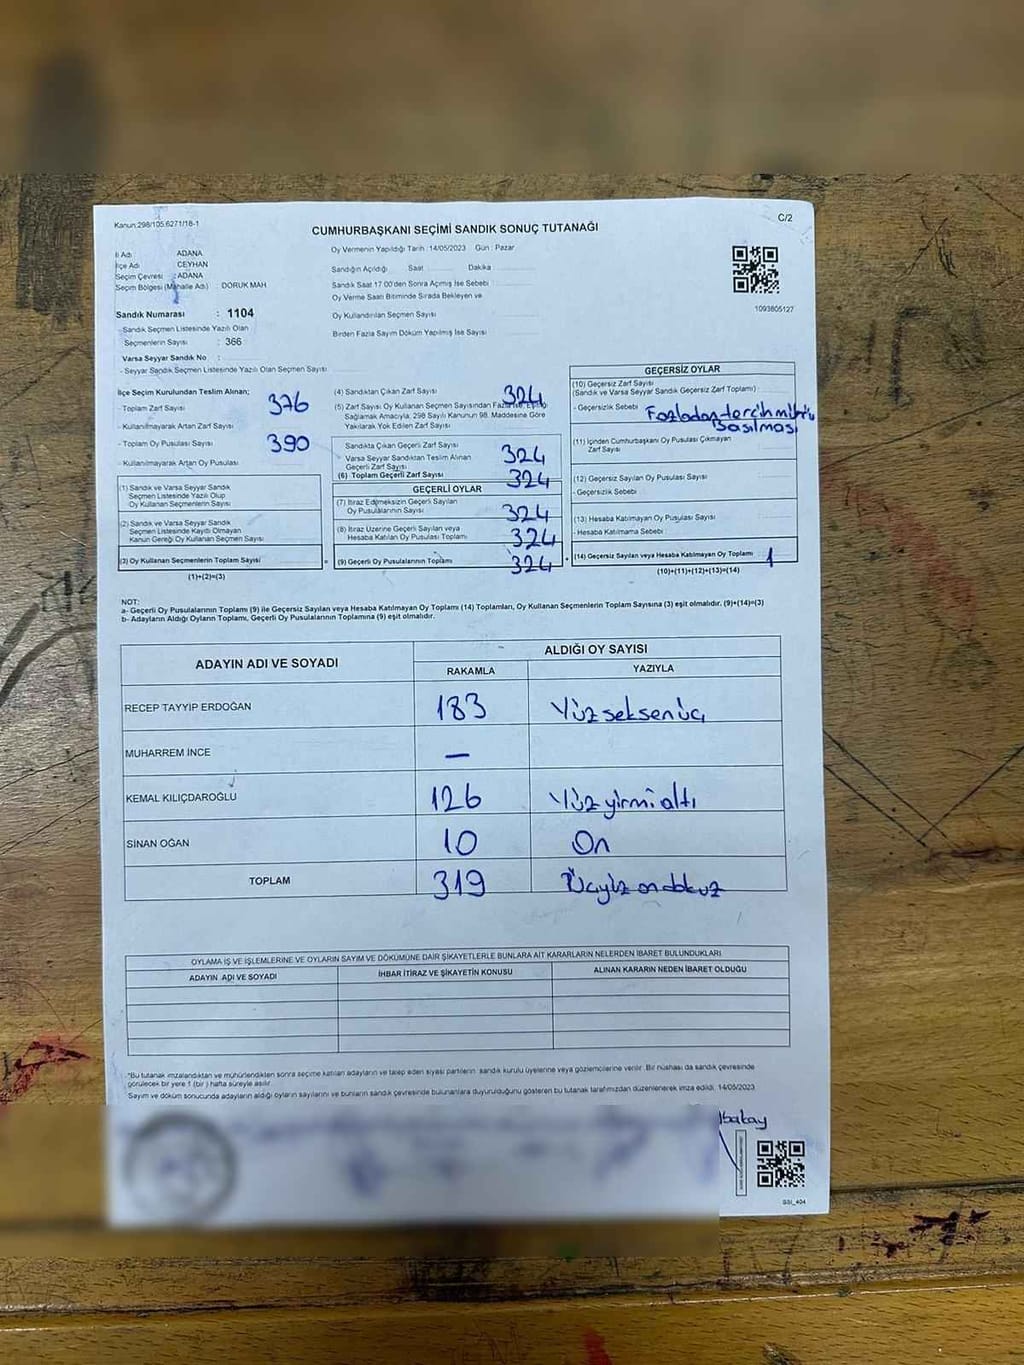 Kanun:298/105.6271/18-1
C/2
CUMHURBAŞKANI SEÇİMİ SANDIK SONUÇ TUTANAĞI
İl Adı ADANA
İlçe Adı CEYHAN
Seçim Çevresi : ADANA
Seçim Bölgesi (Mahalle Adı) : DORUK MAH
Oy Vermenin Yapıldığı Tarih : 14/05/2023 Gün : Pazar
Sandığın Açıldığı Saat Dakika
Sandık Saat 17 00'den Sonra Açmış İse Sebebi
Oy Verme Saati Bitiminde Sırada Bekleyen ve
Oy Kullandırılan Seçmen Sayısı
Birden Fazla Sayım Döküm Yapılmış İse Sayısı
1093805127
Sandık Numarası : 1104
Sandık Seçmen Listesinde Yazılı Olan
Seçmenlerin Sayısı : 366
Varsa Seyyar Sandık No :
- Seyyar Sandık Seçmen Listesinde Yazılı Olan Seçmen Sayısı
İlçe Seçim Kurulundan Teslim Alınan;
- Toplam Zarf Sayısı 376
- Kullanılmayarak Artan Zarf Sayısı
- Toplam Oy Pusulası Sayısı 390
- Kullanılmayarak Artan Oy Pusulası
(1) Sandık ve Varsa Seyyar Sandık
Seçmen Listesinde Yazılı Olup
Oy Kullanan Seçmenlerin Sayısı
(2) Sandık ve Varsa Seyyar Sandık
Seçmen Listesinde Kayıtlı Olmayan
Kanun Gereği Oy Kullanan Seçmen Sayısı
(3) Oy Kullanan Seçmenlerin Toplam Sayısı
(1)+(2)=(3)
(4) Sandıktan Çıkan Zarf Sayısı 324
(5) Zarf Sayısı Oy Kullanan Seçmen Sayısından Fazla İse, Eşitliği
Sağlamak Amacıyla, 298 Sayılı Kanunun 98. Maddesine Göre
Yakılarak Yok Edilen Zarf Sayısı
Sandıkta Çıkan Geçerli Zarf Sayısı
Varsa Seyyar Sandıktan Teslim Alınan 324
Geçerli Zarf Sayısı
(6) Toplam Geçerli Zarf Sayısı 324
GEÇERLİ OYLAR
(7) İtiraz Edilmeksizin Geçerli Sayılan
Oy Pusulalarının Sayısı 324
(8) İtiraz Üzerine Geçerli Sayılan veya
Hesaba Katılan Oy Pusulası Toplamı 324
(9) Geçerli Oy Pusulalarının Toplamı 324
GEÇERSİZ OYLAR
(10) Geçersiz Zarf Sayısı
(Sandık ve Varsa Seyyar Sandık Geçersiz Zarf Toplamı)
- Geçersizlik Sebebi Fazladan tercih mührü
basılması
(11) İçinden Cumhurbaşkanı Oy Pusulası Çıkmayan
Zarf Sayısı
(12) Geçersiz Sayılan Oy Pusulası Sayısı
- Geçersizlik Sebebi
(13) Hesaba Katılmayan Oy Pusulası Sayısı
- Hesaba Katılmama Sebebi
(14) Geçersiz Sayılan veya Hesaba Katılmayan Oy Toplamı 1
(10)+(11)+(12)+(13)=(14)
NOT:
a- Geçerli Oy Pusulalarının Toplamı (9) ile Geçersiz Sayılan veya Hesaba Katılmayan Oy Toplamı (14) Toplamları, Oy Kullanan Seçmenlerin Toplam Sayısına (3) eşit olmalıdır. (9)+(14)=(3)
b- Adayların Aldığı Oyların Toplamı, Geçerli Oy Pusulalarının Toplamına (9) eşit olmalıdır.
ADAYIN ADI VE SOYADI
ALDIĞI OY SAYISI
RAKAMLA YAZIYLA
RECEP TAYYİP ERDOĞAN 183 Yüzseksenüç
MUHARREM İNCE —
KEMAL KILIÇDAROĞLU 126 Yüzyirmialtı
SİNAN OĞAN 10 On
TOPLAM 319 Üçyüzondokuz
OYLAMA İŞ VE İŞLEMLERİNE VE OYLARIN SAYIM VE DÖKÜMÜNE DAİR ŞİKAYETLERLE BUNLARA AİT KARARLARIN NELERDEN İBARET BULUNDUKLARI
ADAYIN ADI VE SOYADI İHBAR İTİRAZ VE ŞİKAYETİN KONUSU ALINAN KARARIN NEDEN İBARET OLDUĞU
*Bu tutanak imzalandıktan ve mühürlendikten sonra seçime katılan adayların ve talep eden siyasi partilerin sandık kurulu üyelerine veya gözlemcilerine verilir. Bir nüshası da sandık çevresinde
görülecek bir yere 1 (bir) hafta süreyle asılır.
Sayım ve döküm sonucunda adayların aldığı oyların sayılarını ve bunların sandık çevresinde bulunanlara duyurulduğunu gösteren bu tutanak tarafımızdan düzenlenerek imza edildi. 14/05/2023
SSI_404